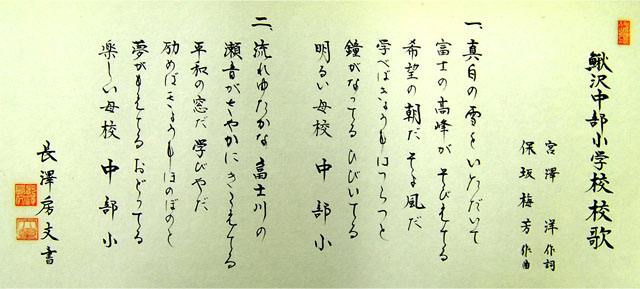 鰍沢中部小学校校歌
宮澤 洋 作詞
保坂梅芳 作曲
一、真白の雪をいただいて
富士の高峰がそびえてる
希望の朝だ そよ風だ
学べばきょうもはつらつと
鐘がなってる ひびいてる
明るい母校 中部小
二、流れゆたかな 富士川の
瀬音がさやかに きこえてる
平和の窓だ 学びやだ
励めばきょうもほのぼのと
夢がもえてる おどってる
楽しい母校 中部小
長澤房文書